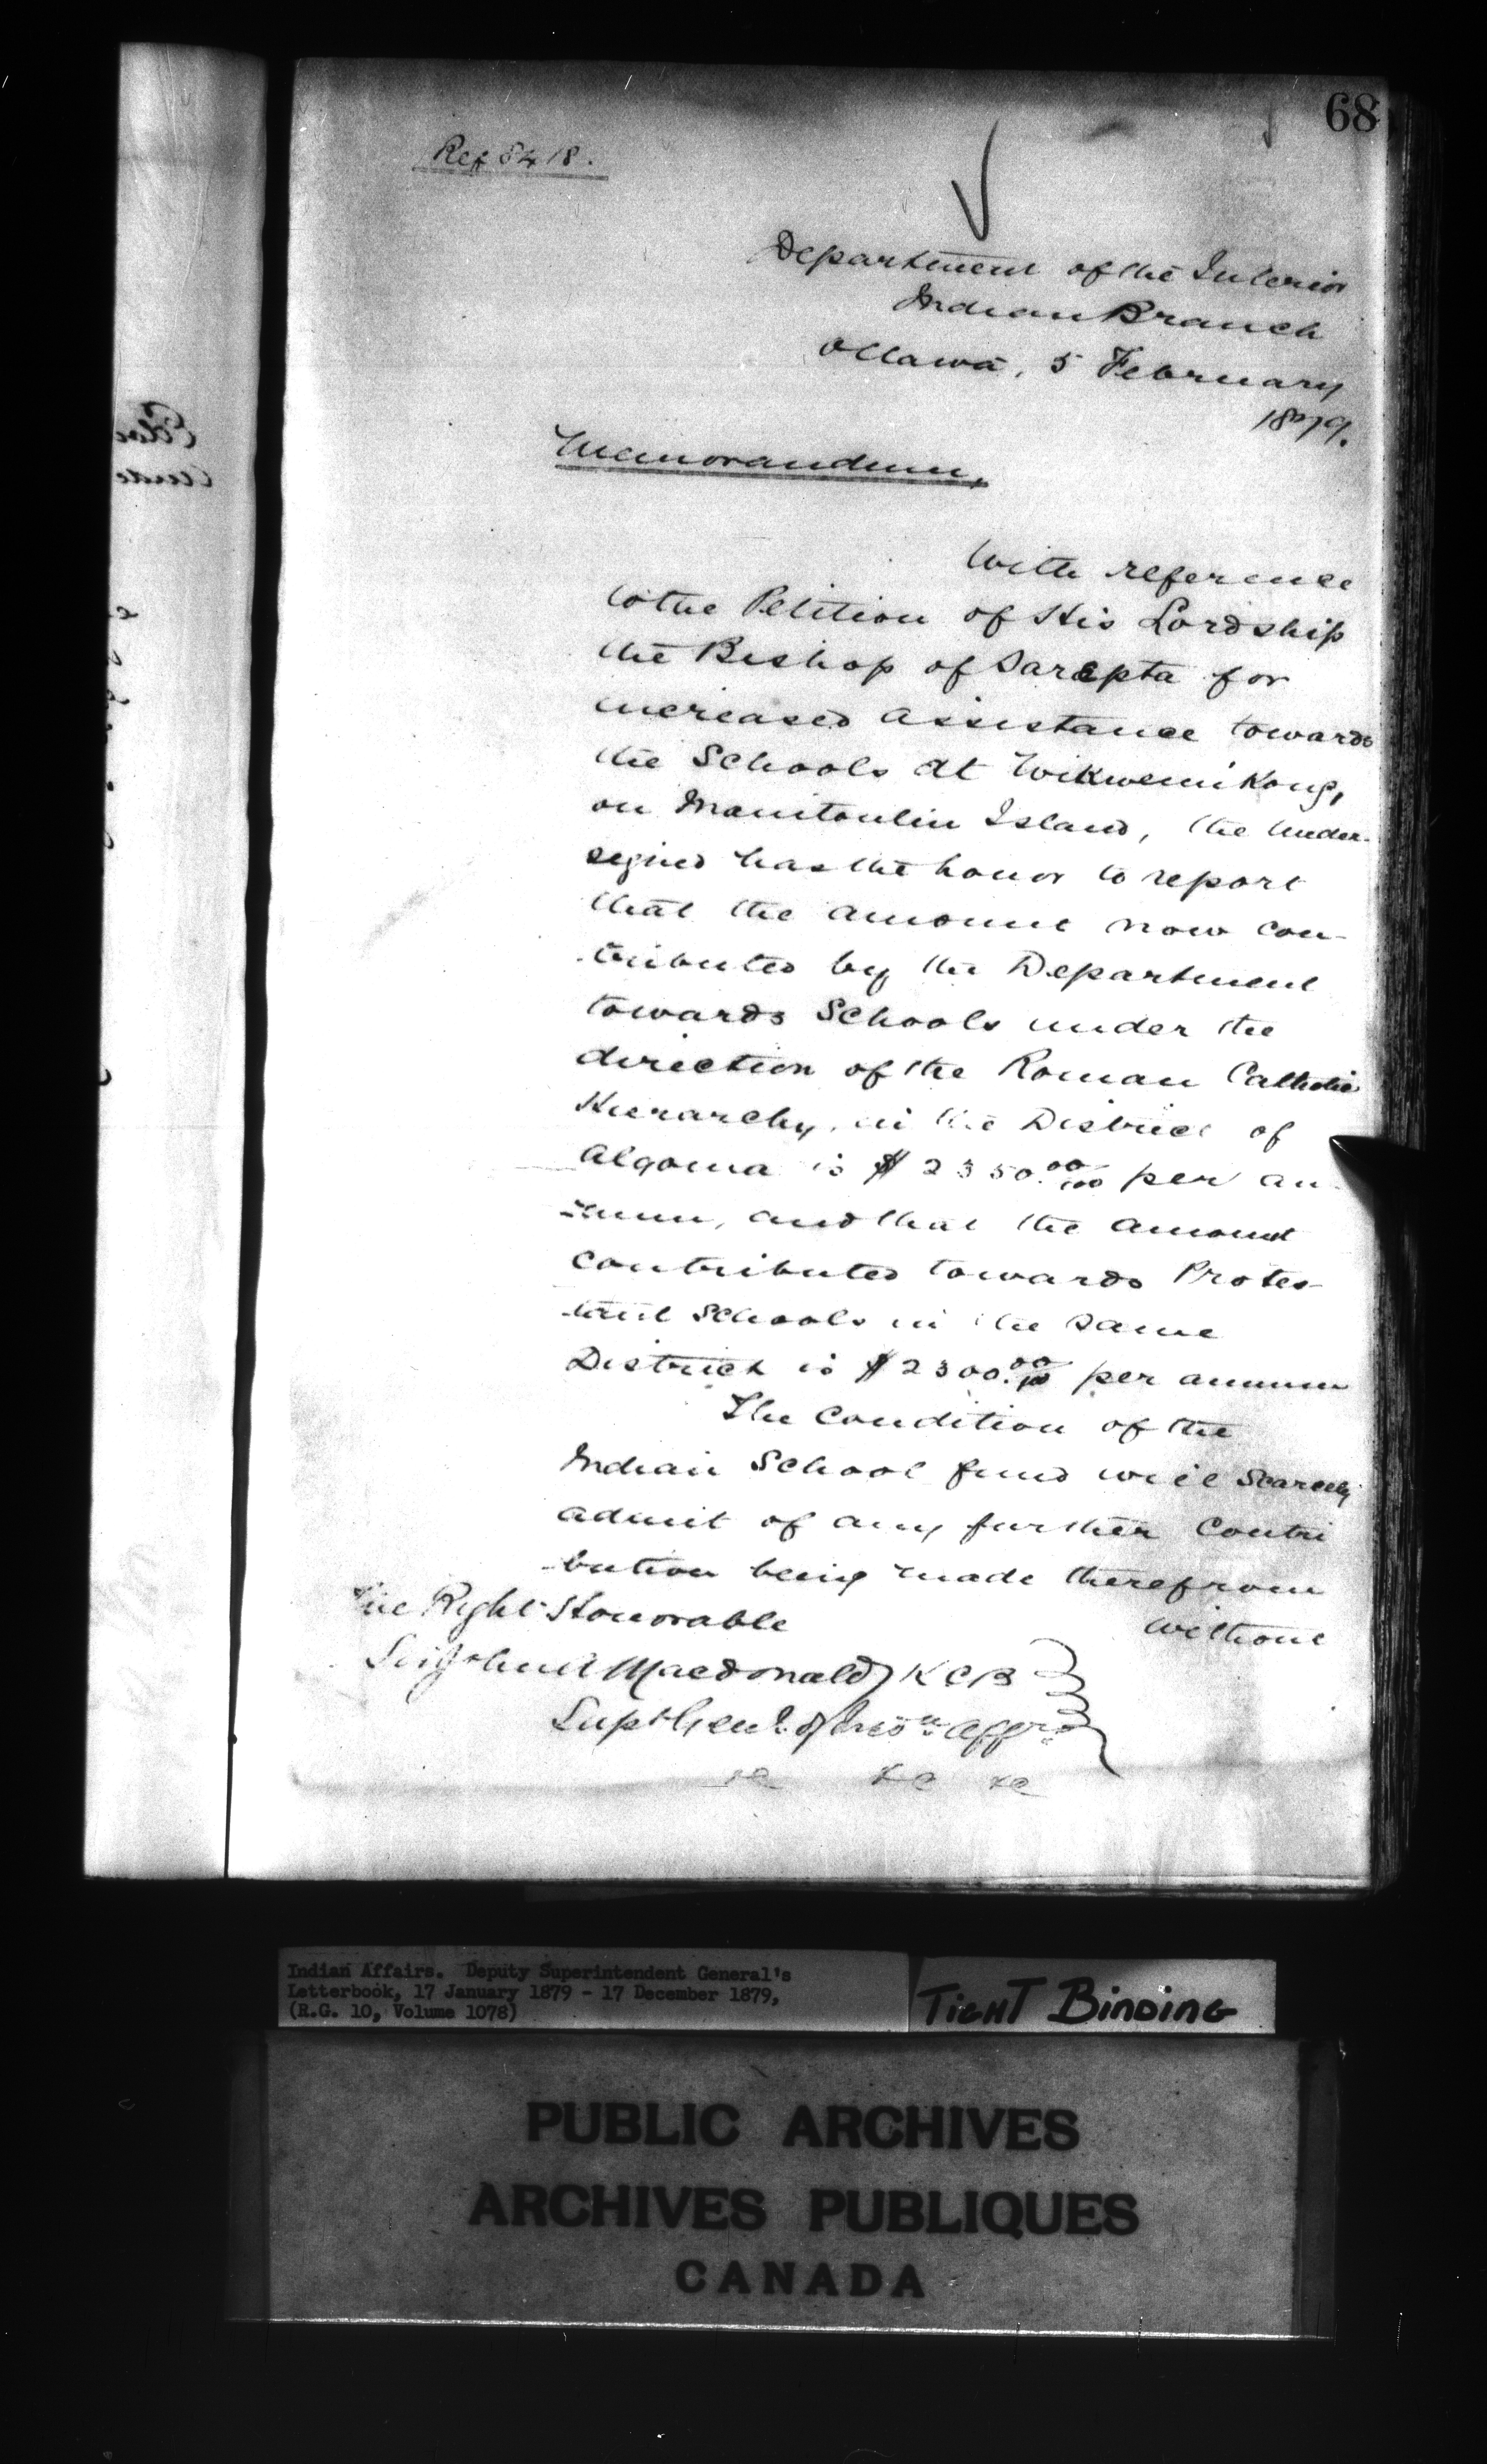 68
Ref 8418.
Department of the Interior
Indian Branch
Ottawa, 5 February
1879.
Memorandum,
With reference
to the Petition of His Lordship
the Bishop of Sarepta for
increased assistance towards
the Schools at Wikwemikong,
on Manitoulin Island, the Under-
signed has the honor to report
that the amount now con-
-tributed by the Department
towards Schools under the
direction of the Roman Catholic
Hierarchy, in the District of
Algoma is $2350.00/100 per an-
-num, and that the amount
contributed towards Protes-
-tant Schools in the same
District is $2300.00/100 per annum
The Condition of the
Indian School fund will scarcely
admit of any further Contri
-bution being made therefrom
without
The Right Honorable
Sir John A Macdonald, KCB
Supt Genl. of Indn Affrs
&c &c &c
Indian Affairs. Deputy Superintendent General's
Letterbook, 17 January 1879 - 17 December 1879,
(R.G. 10, Volume 1078)
TIGHT BINDING
PUBLIC ARCHIVES
ARCHIVES PUBLIQUES
CANADA